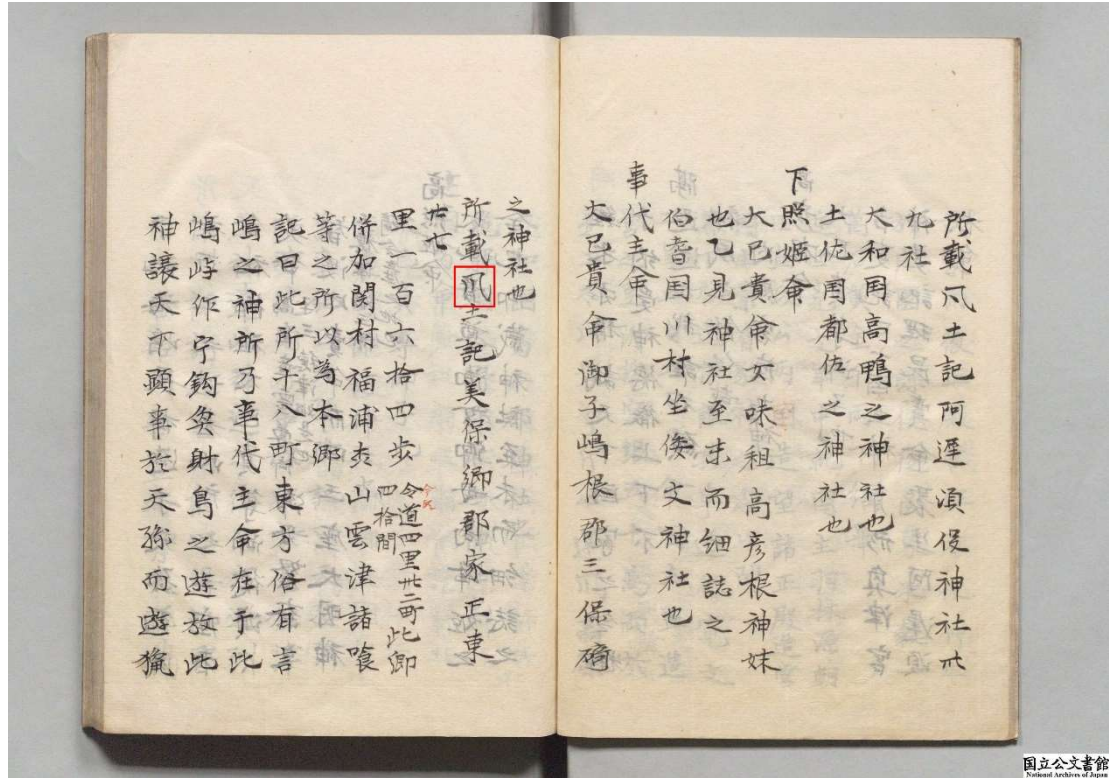 所載凬土記阿遅湏伎神社卅
九社
大和国高鴨之神社也
土佐国都佐之神社也
下照姫命
大已貴命女味祖高彦根神妹
也乙見神社至末而細誌之
伯耆国川村坐倭文神社也
事代主命
大已貴命御子嶋根郡三保碕
之神社也
所載凬土記美保郷郡家正東
廿七
里一百六拾四歩
今道四里卅二町
四拾間
此郷
併加関村福浦
山雲津諸喰
等之所以為本郷
記曰此所十八町東方俗有言
嶋之神所乃事代主命在于此
嶋
作宁鈎矣射鳥之遊故此
神譲天下顕事於天孫而遊猟
国立公文書館
National Archives of Japan